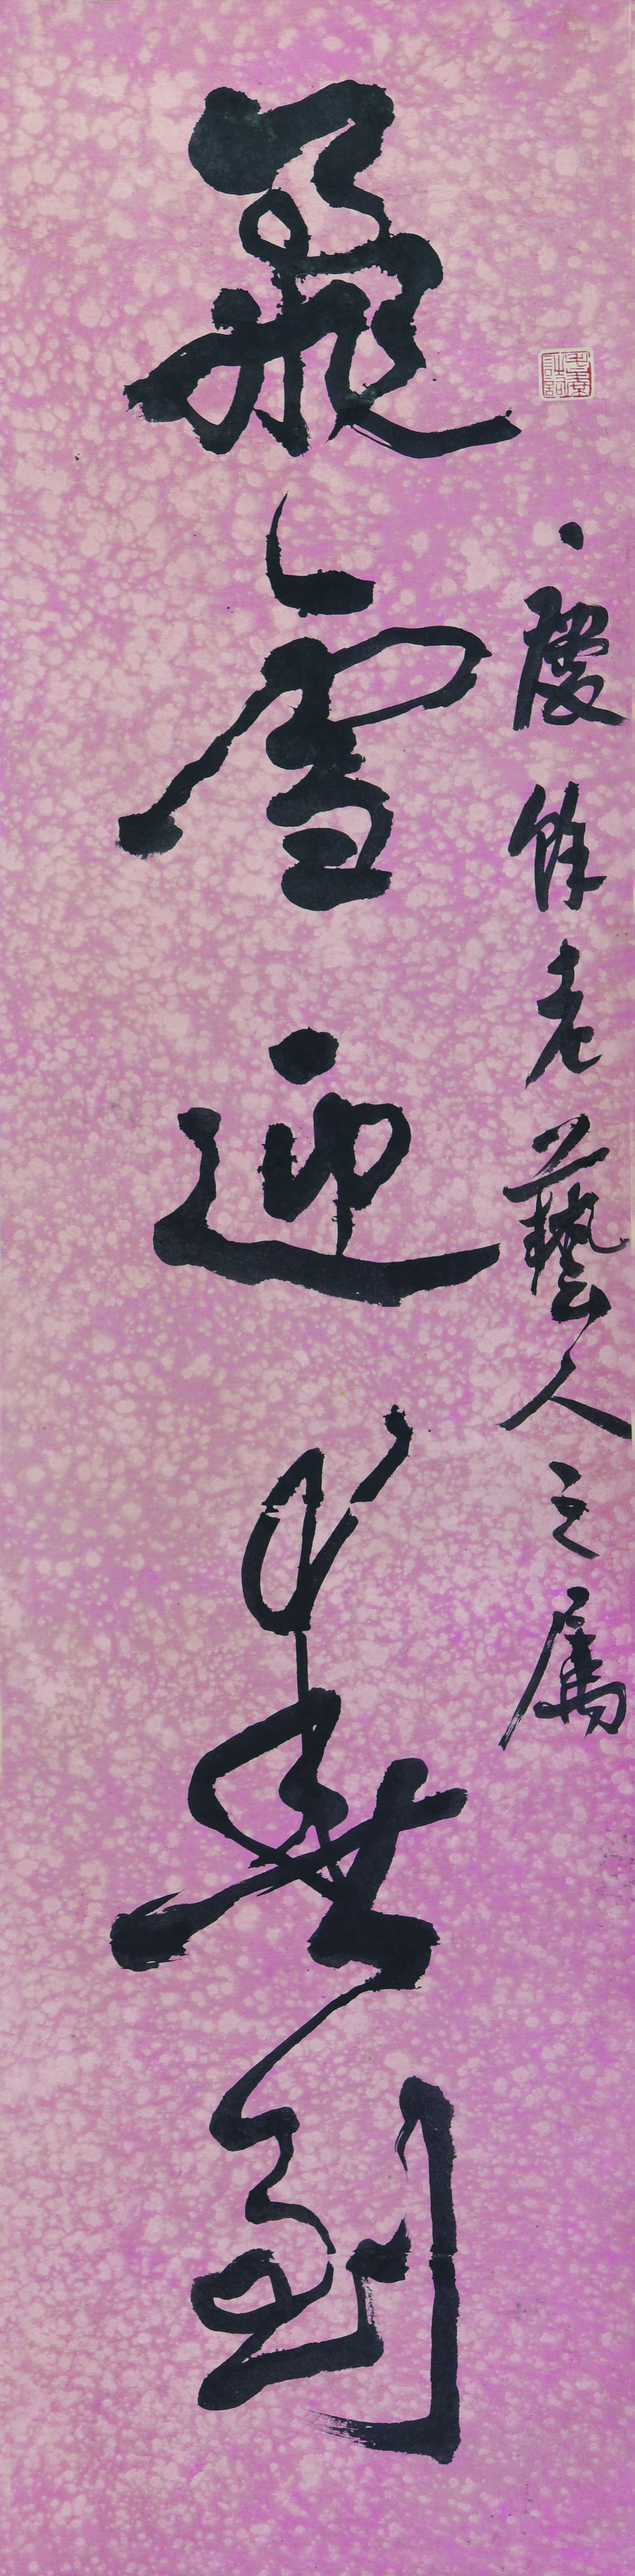 慶餘老藝人之屬
飛雪迎春到